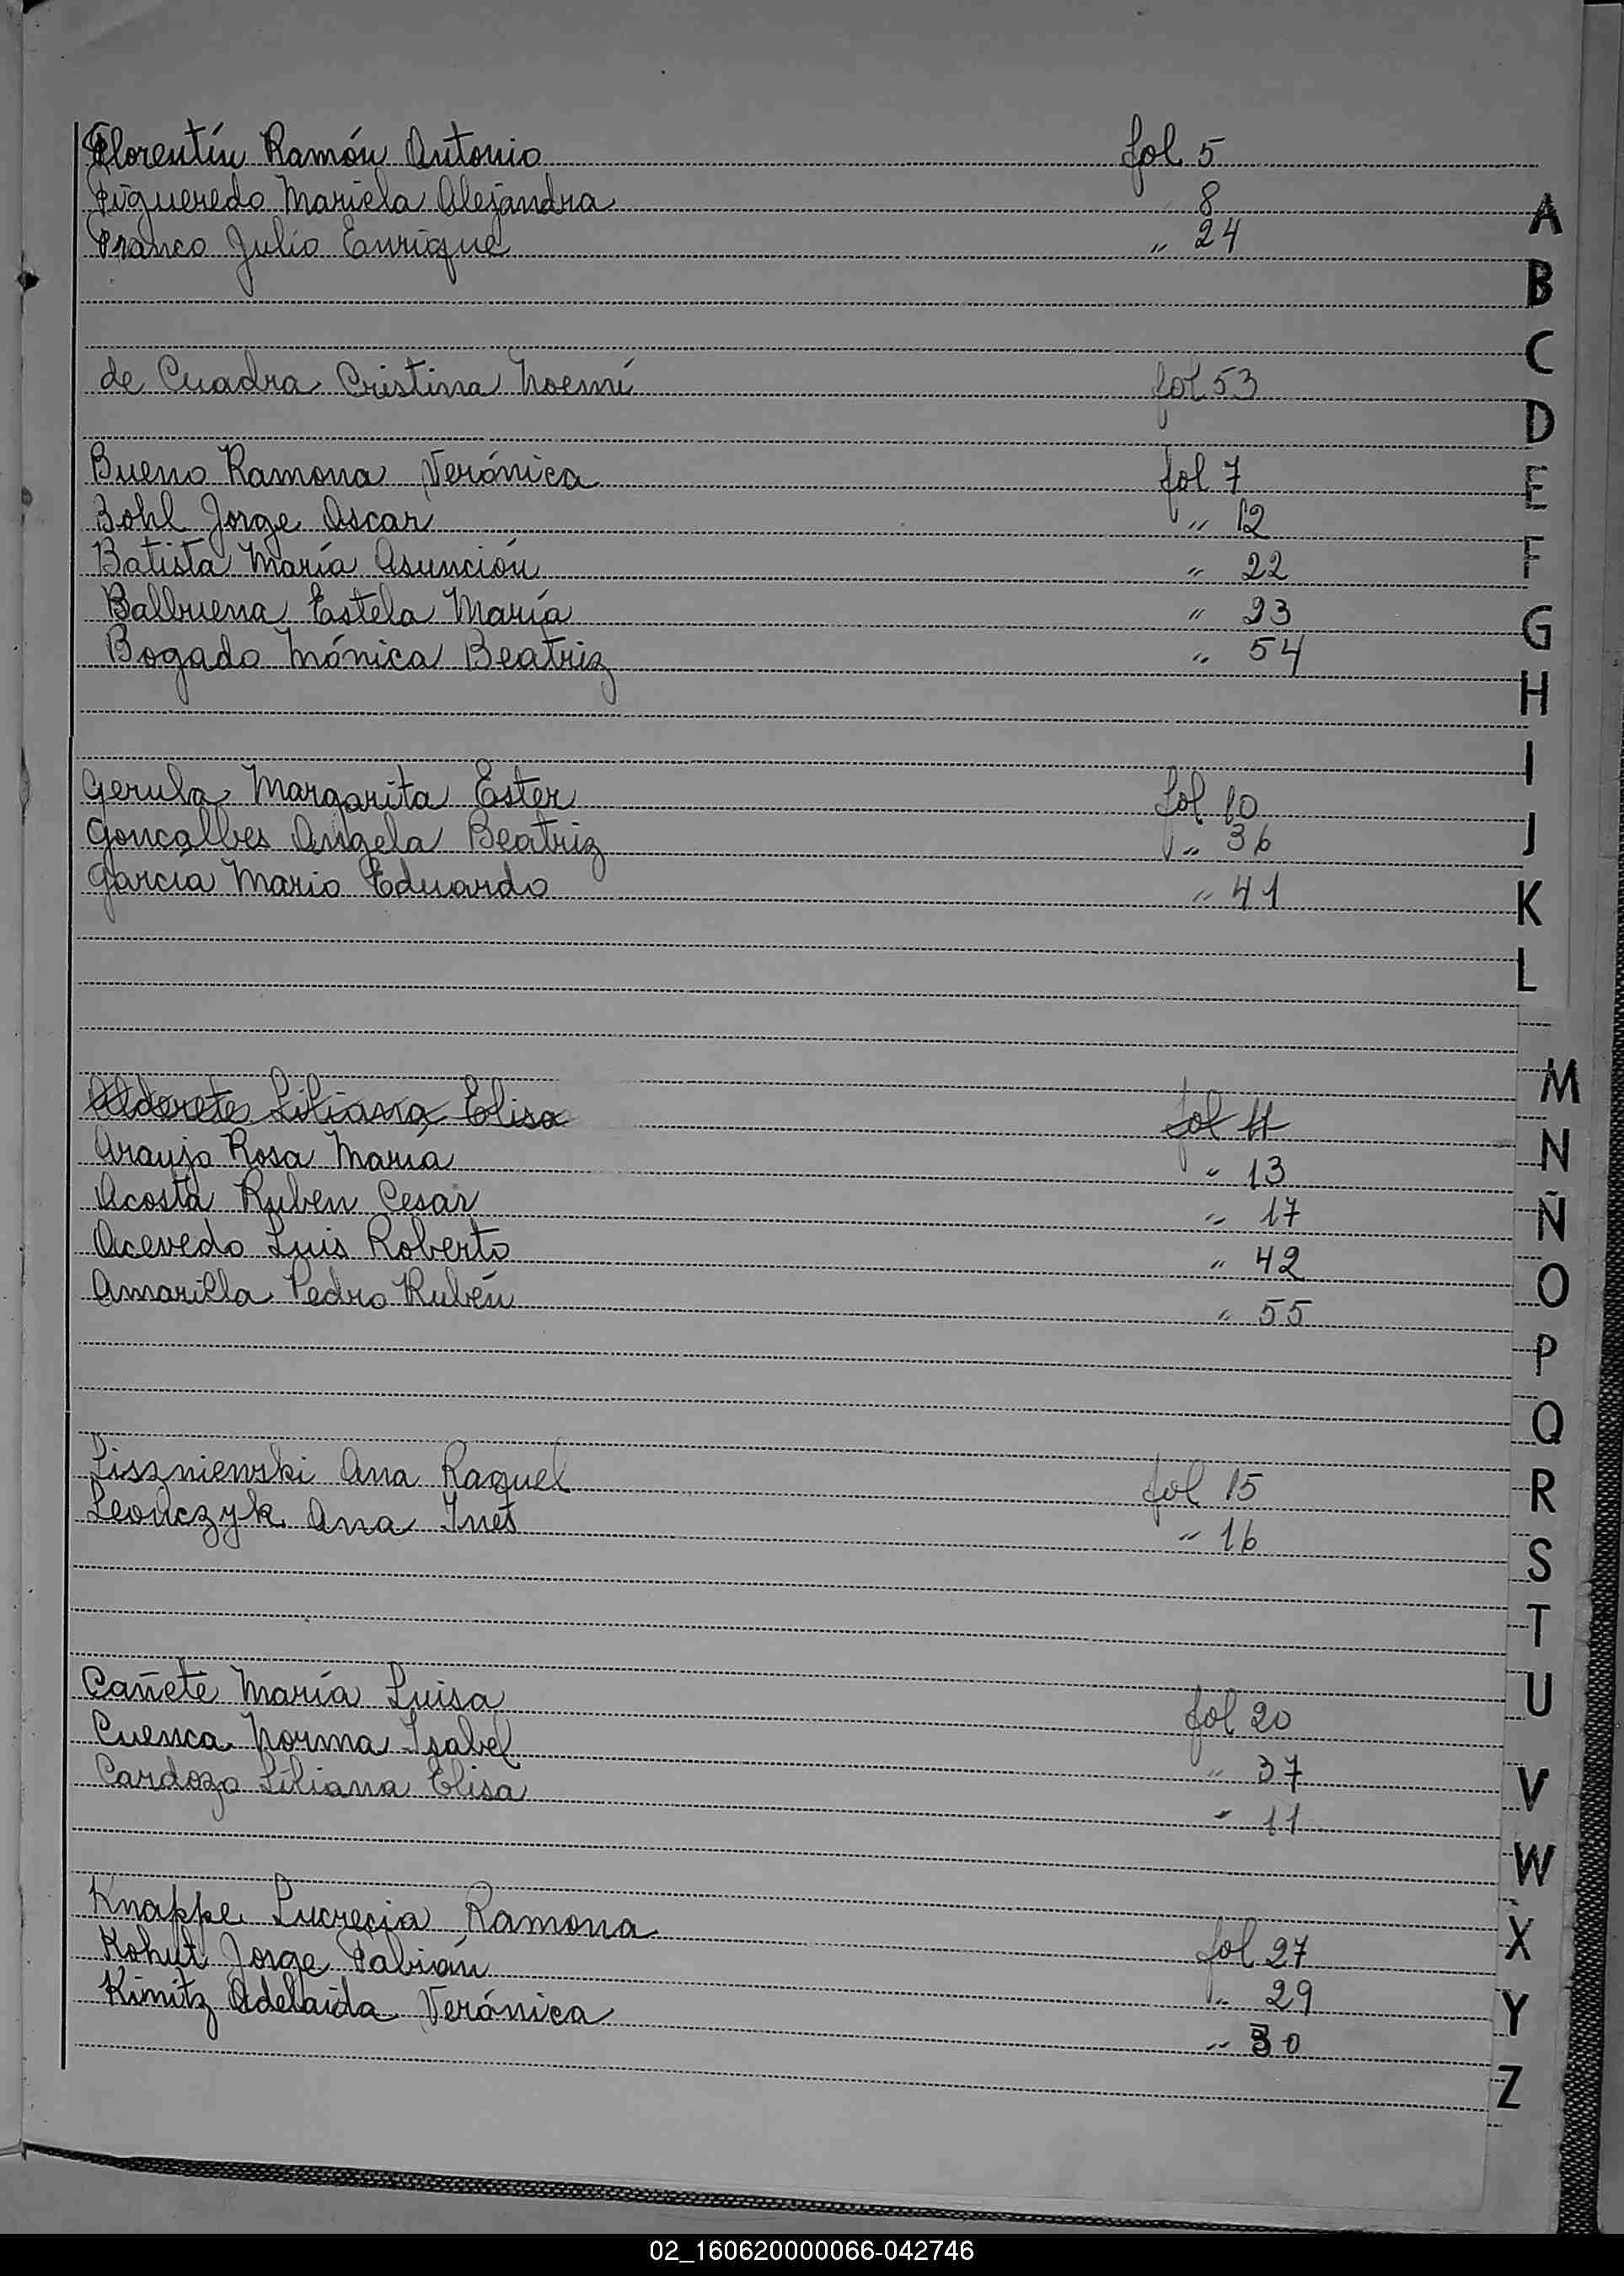 Florentín Ramón Antonio fol 5
Figueredo Mariela Alejandra 8
Franco Julio Enrique " 24
de Cuadra Cristina Noemí fol 53
Bueno Ramona Verónica fol 7
Bohl Jorge Oscar " 12
Batista María Asunción " 22
Balbuena Estela María " 23
Bogado Mónica Beatriz " 54
Gerula Margarita Ester fol 10
Goncalbes Angela Beatriz " 36
García Mario Eduardo " 41
Alderete Liliana Elisa fol 11
Araujo Rosa María " 13
Acosta Ruben Cesar " 17
Acevedo Luis Roberto " 42
Amarilla Pedro Rubén " 55
Liszniewski Ana Raquel fol 15
Leonczyk Ana Inés " 16
Cañete María Luisa fol 20
Cuenca Norma Isabel " 37
Cardozo Liliana Elisa " 11
Knappe Lucrecia Ramona fol 27
Kohut Jorge Fabián " 29
Kimitz Adelaida Verónica " 30
A
B
C
D
E
F
G
H
I
J
K
L
M
N
Ñ
O
P
Q
R
S
T
U
V
W
X
Y
Z
02_160620000066-042746